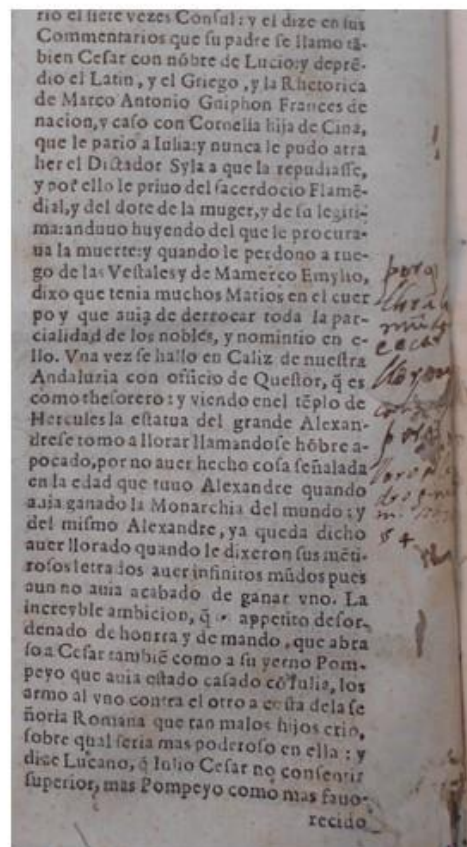 rio el siete vezes Consul: y el dize en sus
Commentarios que su padre se llamo tã-
bien Cesar con nõbre de Lucio: y deprẽ-
dio el Latin, y el Griego, y la Rhetorica
de Marco Antonio Gniphon Frances de
nacion, y caso con Cornelia hija de Cina,
que le pario a Iulia: y nunca le pudo atra
her el Dictador Syla a que la repudiasse,
y por ello le priuo del sacerdocio Flamẽ-
dial, y del dote de la muger, y de su legiti-
ma: anduuo huyendo del que le procura-
ua la muerte: y quando le perdono a rue-
go de las Vestales y de Mamerco Emylio,
dixo que tenia muchos Marios en el cuer
po y que auia de derrocar toda la par-
cialidad de los nobles, y no mintio en e-
llo. Vna vez se hallo en Caliz de nuestra
Andaluzia con officio de Questor, q̃ es
como thesorero: y viendo enel tẽplo de
Hercules la estatua del grande Alexan-
dre se tomo a llorar llamandose hõbre a-
pocado, por no auer hecho cosa señalada
en la edad que tuuo Alexandre quando
auia ganado la Monarchia del mundo: y
del mismo Alexandre, ya queda dicho
auer llorado quando le dixeron sus mẽti-
rosos letrados auer infinitos mũdos pues
aun no auia acabado de ganar vno. La
increyble ambicion, q̃ appetito desor-
denado de honrra y de mando, que abra
so a Cesar tambiẽ como a su yerno Pom-
peyo que auia estado casado cõ Iulia, los
armo al vno contra el otro a costa dela se
ñoria Romana que tan malos hijos crio,
sobre qual seria mas poderoso en ella: y
dize Lucano, q̃ Iulio Cesar no consentir
superior, mas Pompeyo como mas fauo-
recido